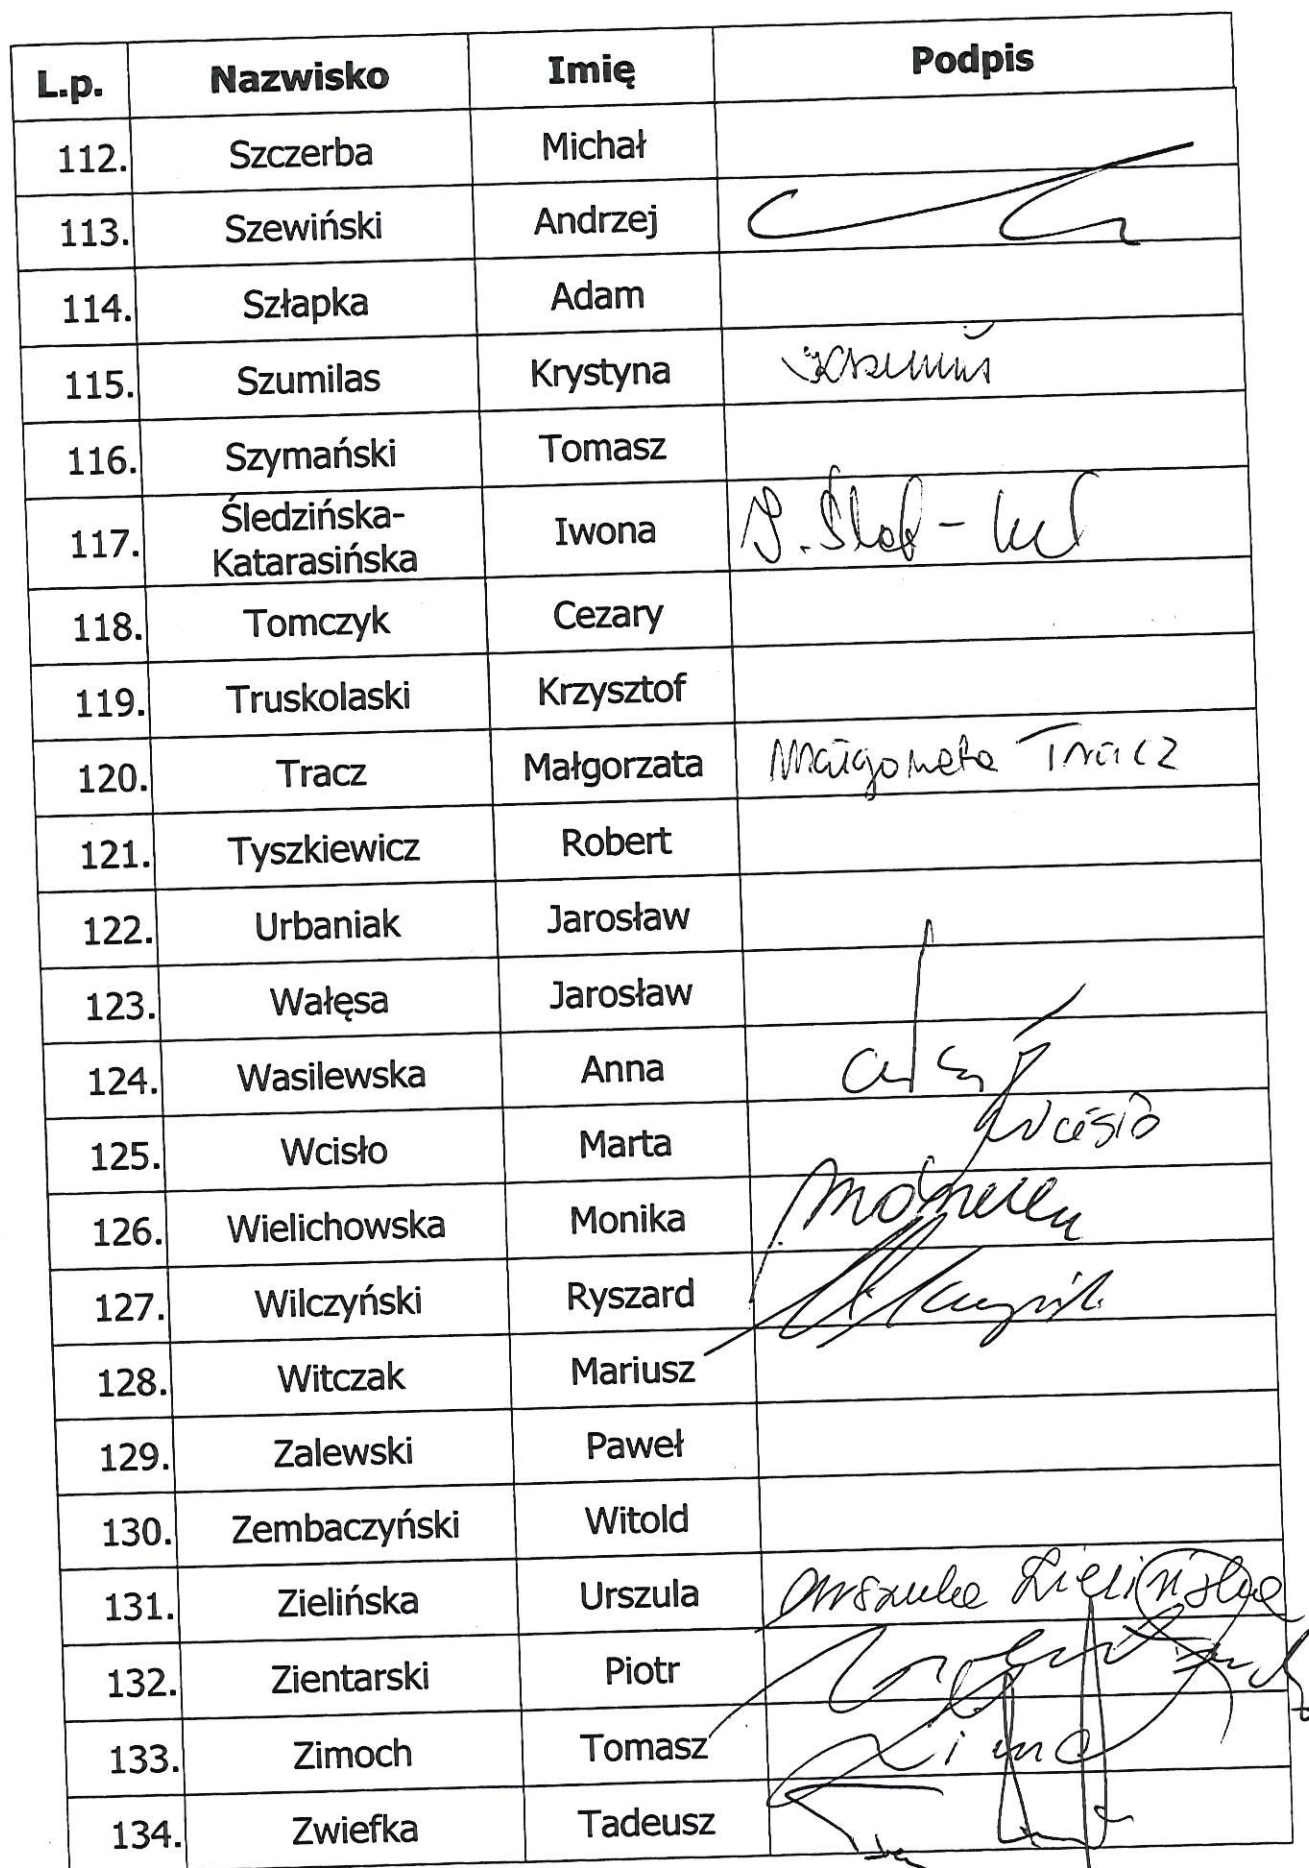 L.p. Nazwisko Imię Podpis
112. Szczerba Michał
113. Szewiński Andrzej
114. Szłapka Adam
115. Szumilas Krystyna
116. Szymański Tomasz
117. Śledzińska-
Katarasińska Iwona
118. Tomczyk Cezary
119. Truskolaski Krzysztof
120. Tracz Małgorzata Małgorzata Tracz
121. Tyszkiewicz Robert
122. Urbaniak Jarosław
123. Wałęsa Jarosław
124. Wasilewska Anna
125. Wcisło Marta Wcisło
126. Wielichowska Monika
127. Wilczyński Ryszard
128. Witczak Mariusz
129. Zalewski Paweł
130. Zembaczyński Witold
131. Zielińska Urszula Urszula Zielińska
132. Zientarski Piotr
133. Zimoch Tomasz
134. Zwiefka Tadeusz